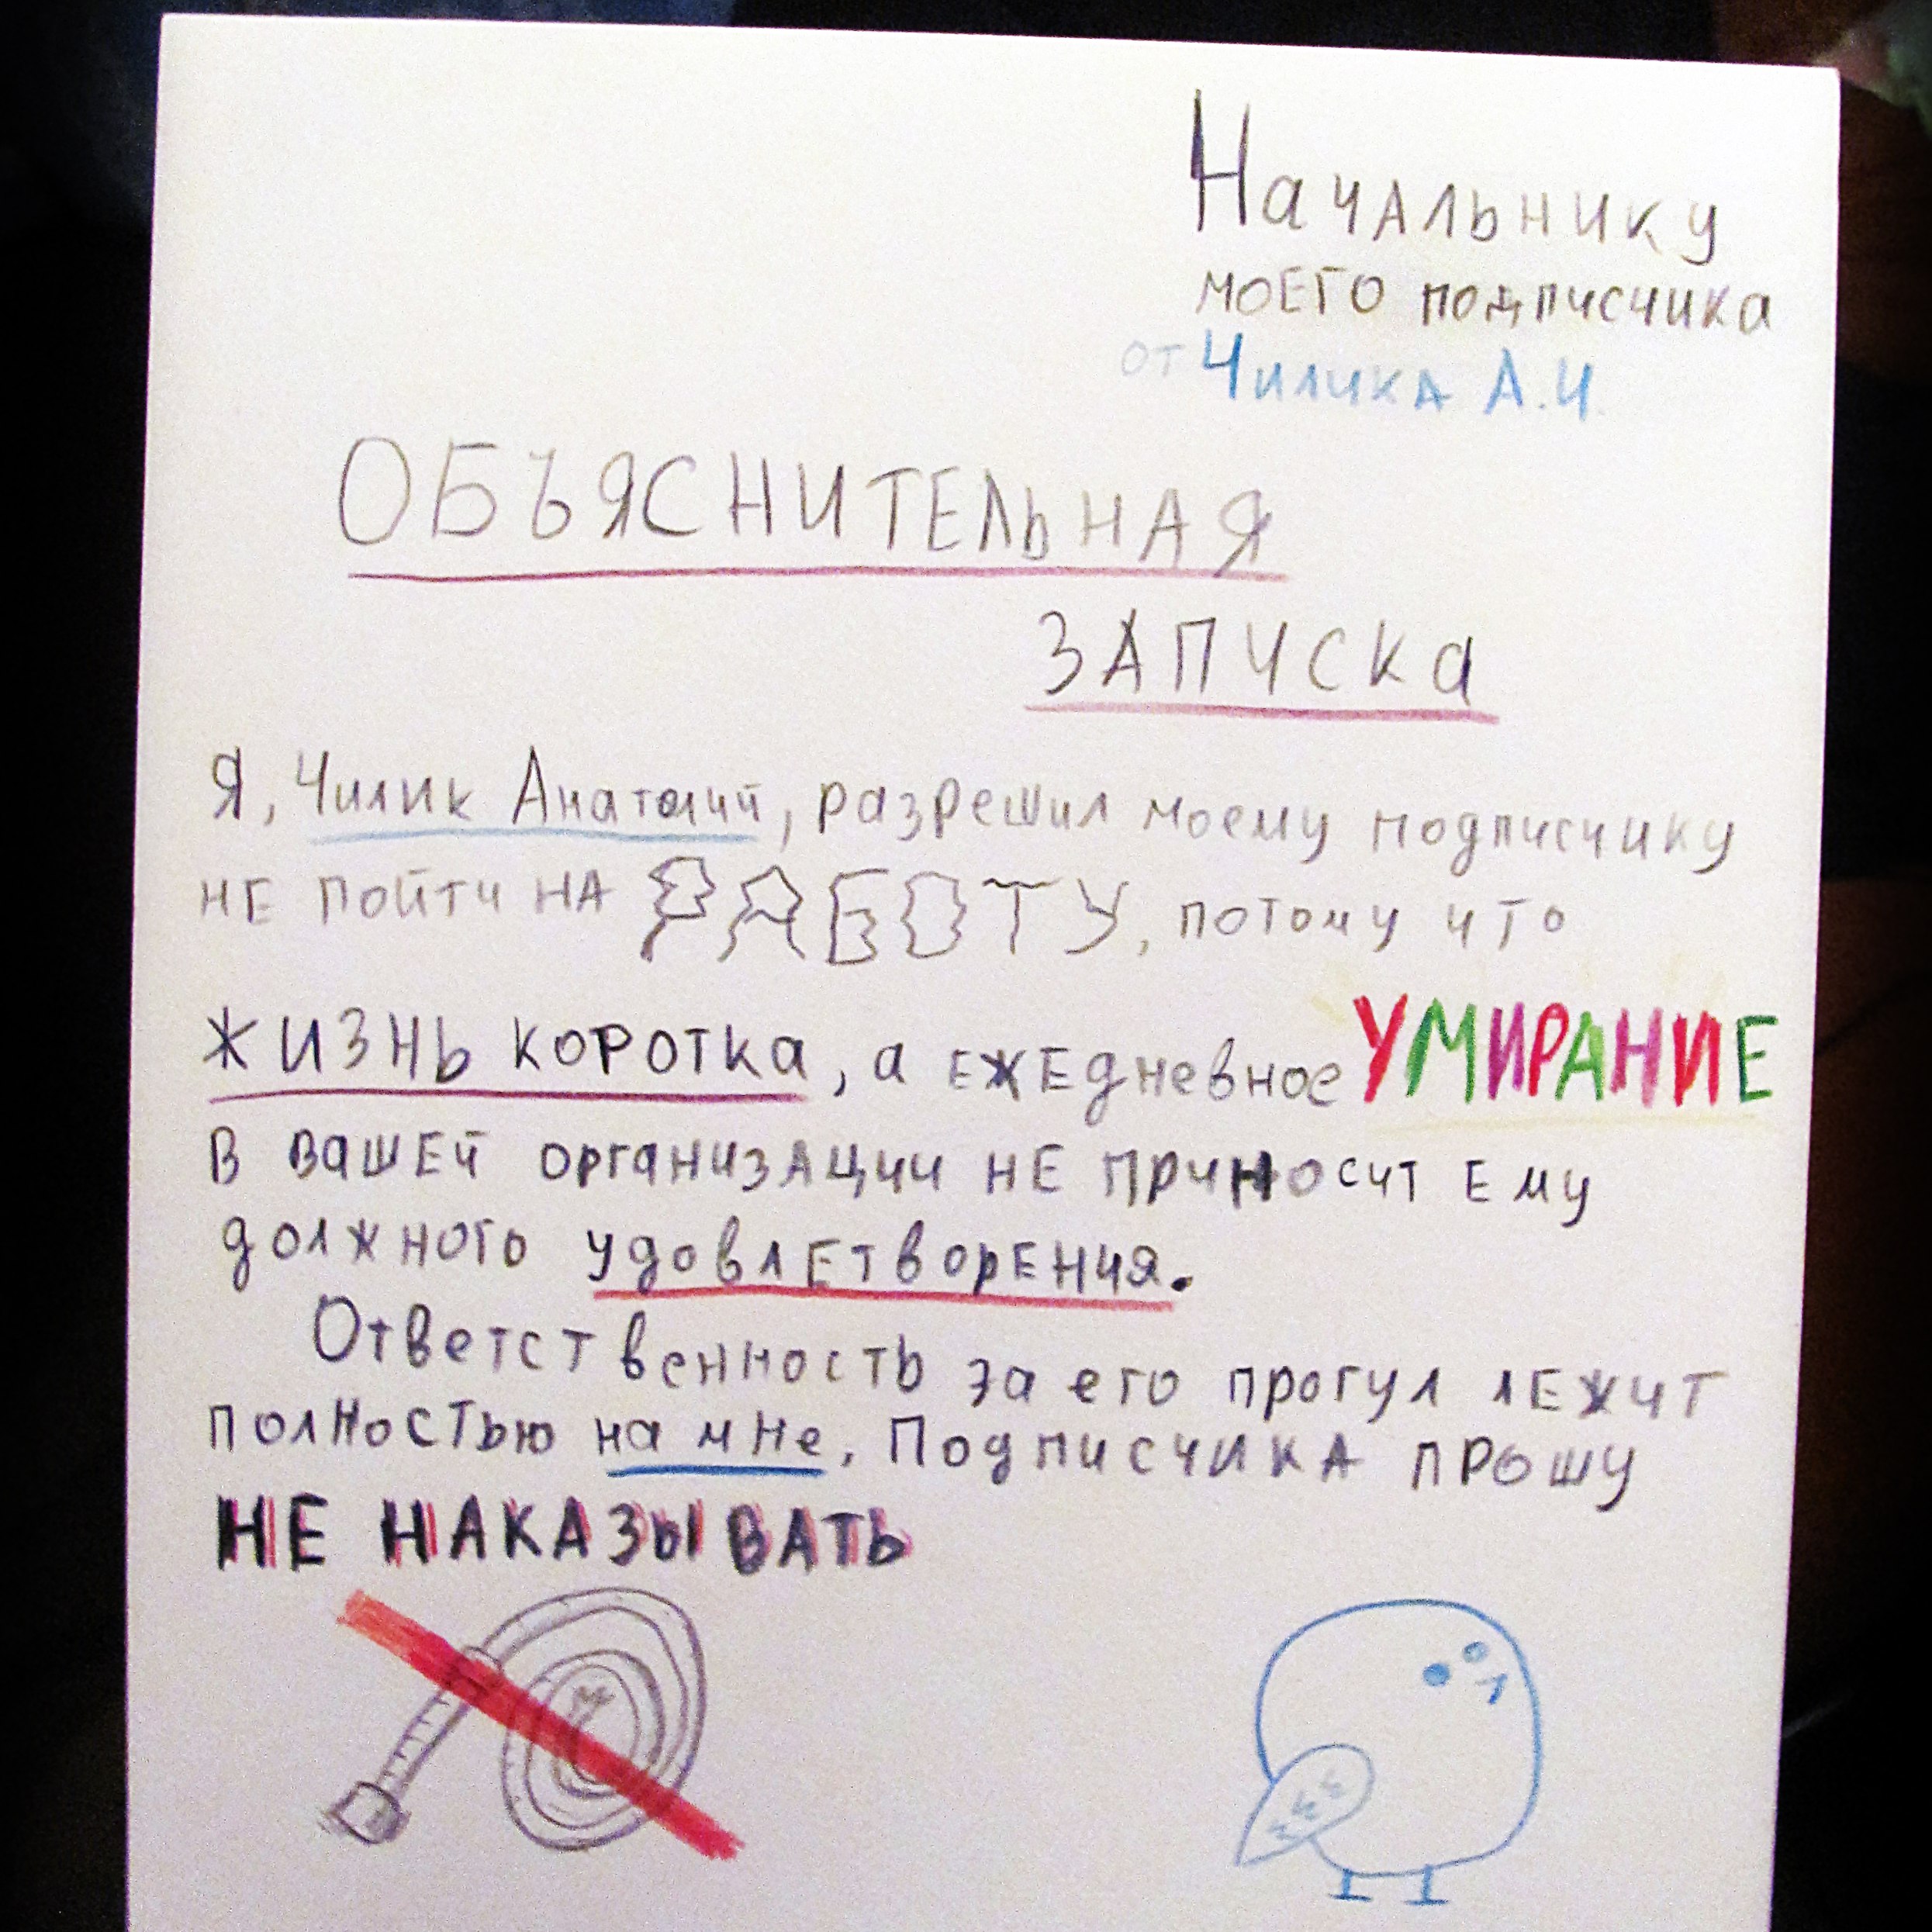 Начальнику
моего подписчика
от Чилика А.И.
ОБЪЯСНИТЕЛЬНАЯ
ЗАПИСКа
Я, Чилик Анатолий, разрешил моему подписчику
НЕ ПОЙТИ НА РАБОТУ, потому что
ЖИЗНЬ КОРОТКа, а ЕЖЕдневное УМИРАНИЕ
В ВашЕй организАции НЕ Приносит Ему
должного удовлЕтворЕния.
Ответственность за его прогул лЕжит
полностью на мне. Подписчика прошу
НЕ НАКАЗЫВАТЬ